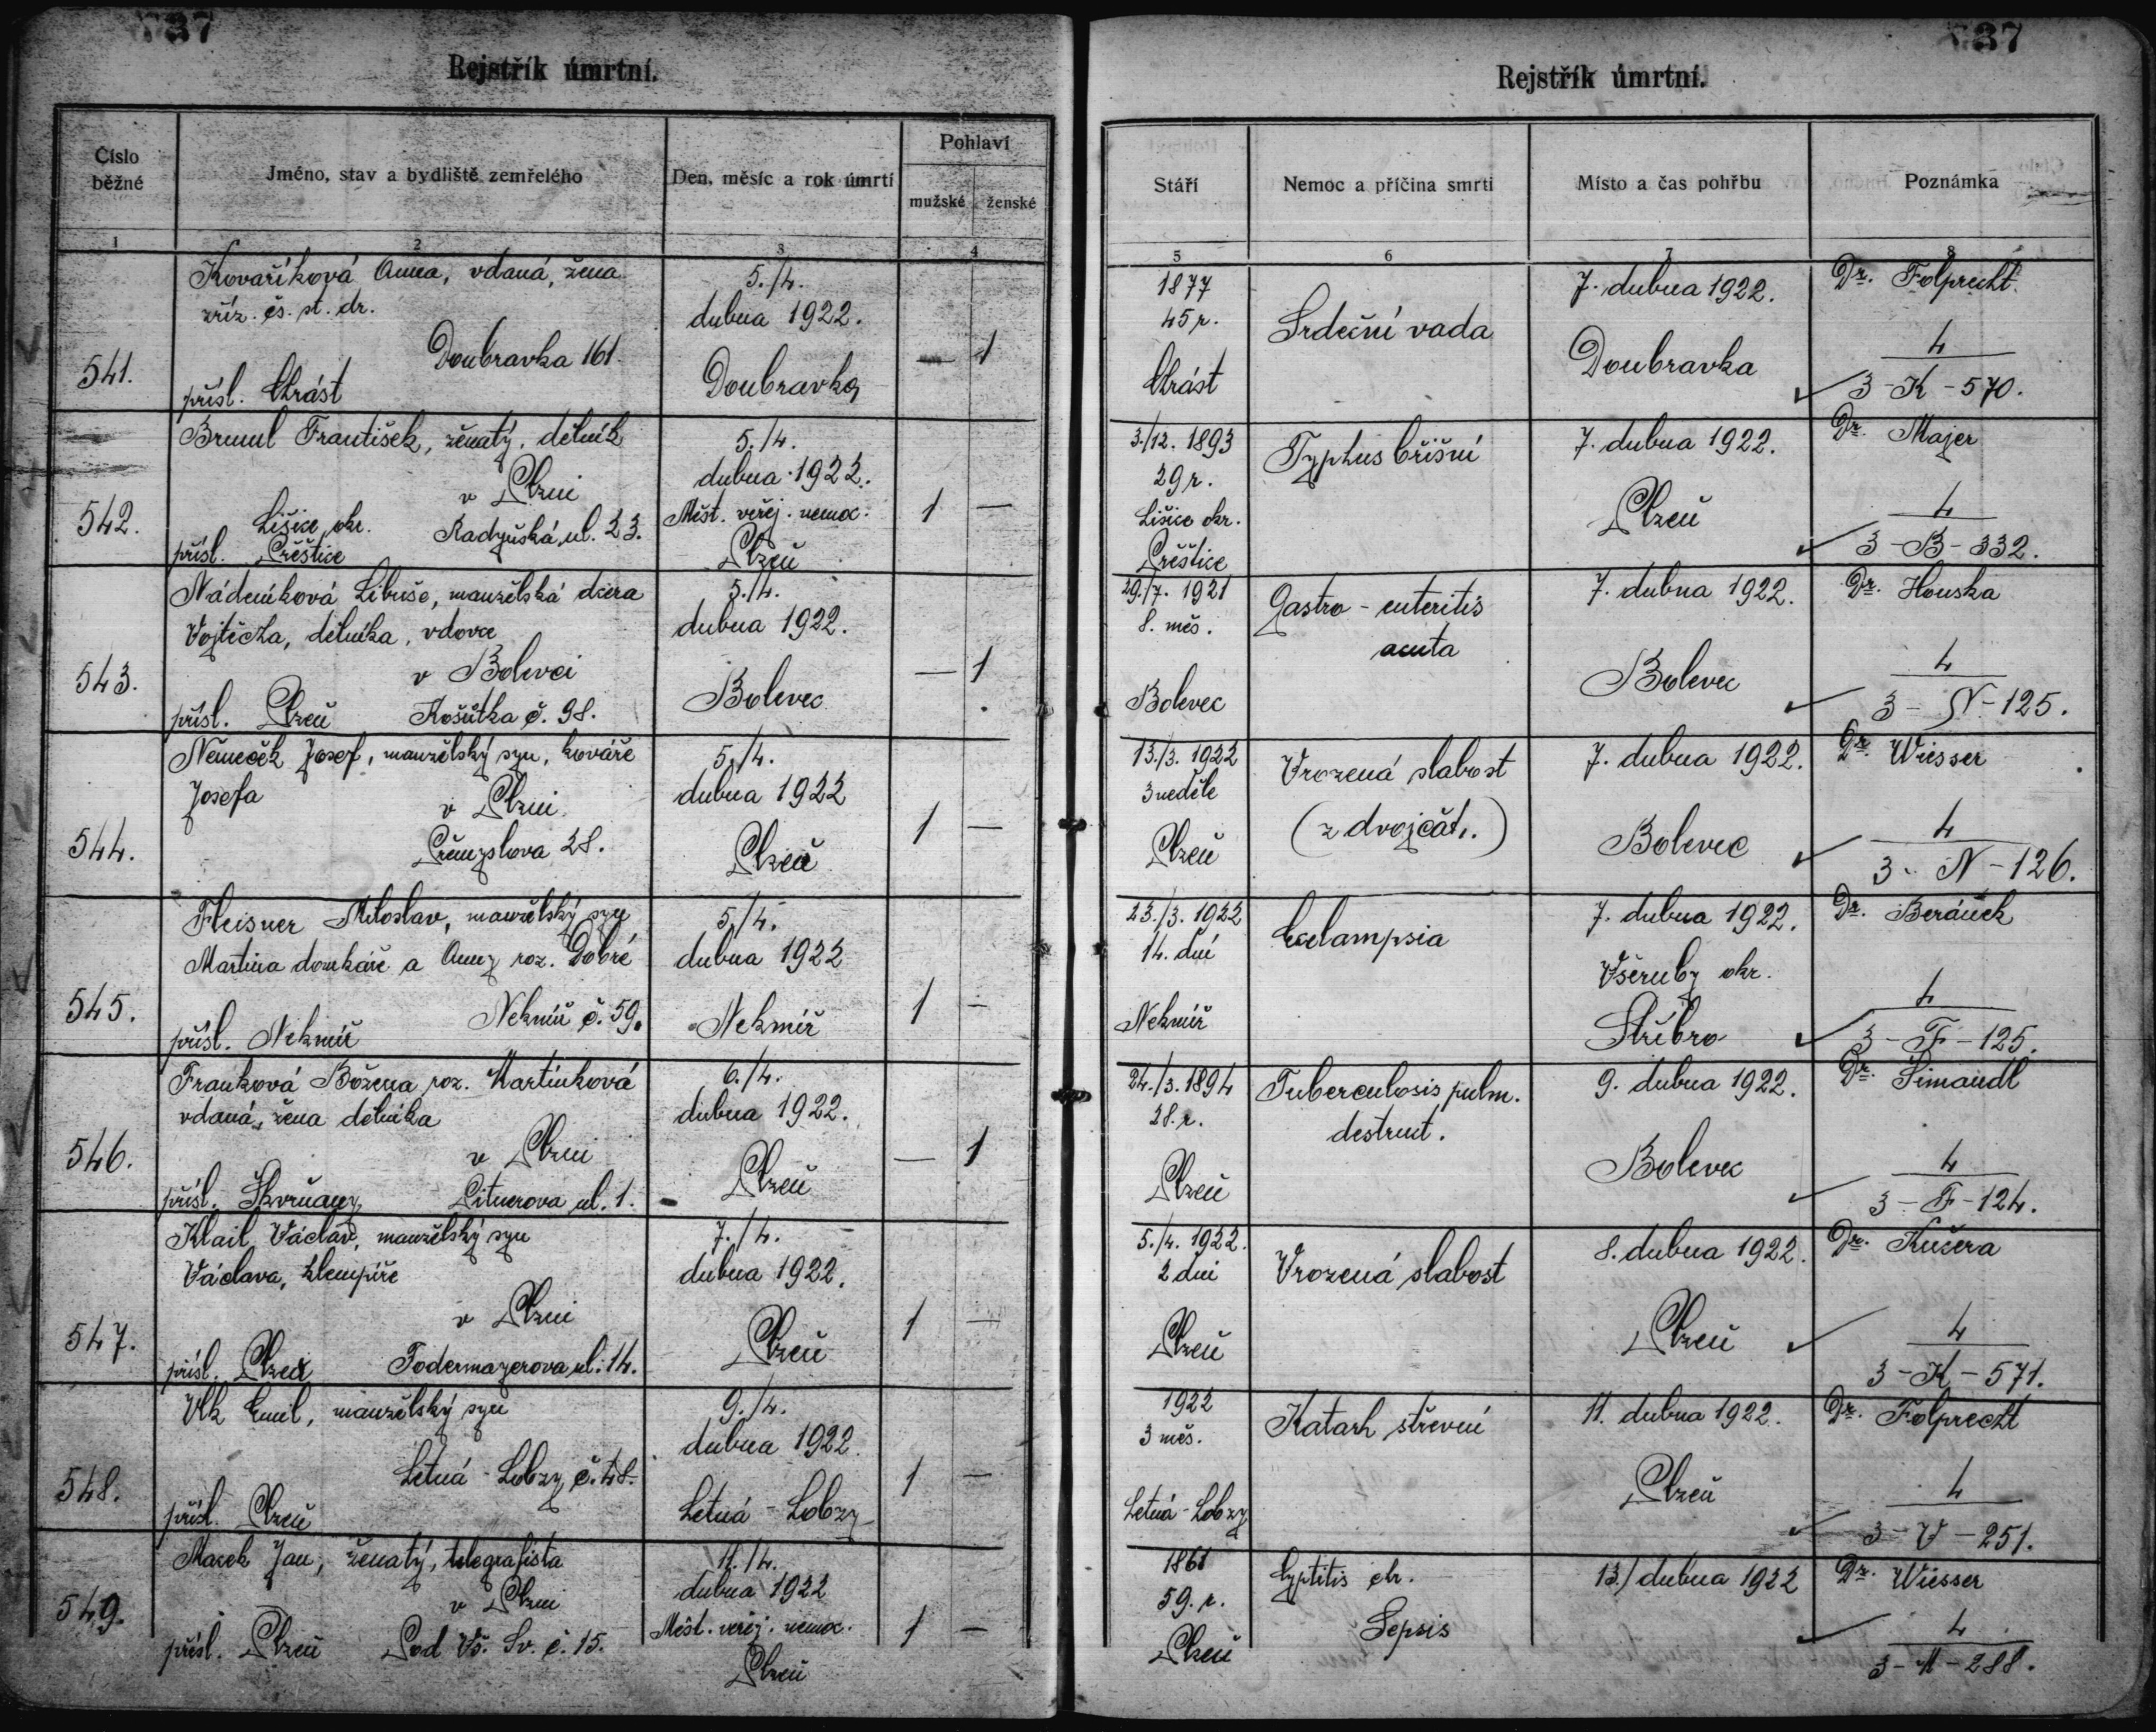 37
Rejstřík úmrtní.
Číslo běžné
Jméno, stav a bydliště zemřelého
Den, měsíc a rok úmrtí
Pohlaví
mužské
ženské
1
2
3
4
541.
Kovaříková Anna, vdaná, žena
zříz. čs. st. dr.
Doubravka 161.
přísl. Chrást
5./4.
dubna 1922.
Doubravka
— 1
542.
Bruml František, ženatý, dělník
v Plzni
Lišice okr. Radyňská ul. 23.
přísl. Přeštice
5./4.
dubna 1922.
Měst. veřej. nemoc.
Plzeň
1 —
543.
Nádeníková Libuše, manželská dcera
Vojtěcha, dělníka, vdovce
v Bolevci
přísl. Plzeň Košutka č. 98.
5./4.
dubna 1922.
Bolevec
— 1
544.
Němeček Josef, manželský syn, kováře
Josefa v Plzni
Přemyslova 28.
5./4.
dubna 1922
Plzeň
1 —
545.
Fleisner Miloslav, manželský syn
Martina domkáře a Anny roz. Dobré
Nekmíř č. 59.
přísl. Nekmíř
5./4.
dubna 1922
Nekmíř
1 —
546.
Franková Božena roz. Martínková
vdaná, žena dělníka
v Plzni
přísl. Skvrňany Pitnerova ul. 1.
6./4.
dubna 1922.
Plzeň
— 1
547.
Klail Václav, manželský syn
Václava, klempíře
v Plzni
přísl. Plzeň Fodermayerova ul. 14.
7./4.
dubna 1922.
Plzeň
1 —
548.
Vlk Emil, manželský syn
Letná - Lobzy č. 48.
přísl. Plzeň
9./4.
dubna 1922
Letná - Lobzy
1 —
549.
Marek Jan, ženatý, telegrafista
v Plzni
přísl. Plzeň Pod Vš. Sv. č. 15.
11./4.
dubna 1922
Měst. veřej. nemoc.
Plzeň
1 —
37
Rejstřík úmrtní.
Stáří
Nemoc a příčina smrti
Místo a čas pohřbu
Poznámka
5
6
7
8
1877
45 r.
Chrást
Srdeční vada
7. dubna 1922.
Doubravka
Dr. Folprecht
4
3-K-570.
3./12. 1893
29 r.
Lišice okr.
Přeštice
Typhus břišní
7. dubna 1922.
Plzeň
Dr. Majer
4
3-B-332.
29./7. 1921
8. měs.
Bolevec
Gastro - enteritis
acuta
7. dubna 1922.
Bolevec
Dr. Houska
4
3-N-125.
13./3. 1922
3 neděle
Plzeň
Vrozená slabost
(z dvojčat.)
7. dubna 1922.
Bolevec
Dr. Wiesser
4
3-N-126.
23./3. 1922
14. dní
Nekmíř
Eclampsia
7. dubna 1922.
Všeruby okr.
Stříbro
Dr. Beránek
4
3-F-125.
24./3. 1894
28. r.
Plzeň
Tuberculosis pulm.
destruct.
9. dubna 1922.
Bolevec
Dr. Šimandl
4
3-F-124.
5./4. 1922.
2 dni
Plzeň
Vrozená slabost
8. dubna 1922.
Plzeň
Dr. Kučera
4
3-K-571.
1922
3 měs.
Letná - Lobzy
Katarh střevní
11. dubna 1922.
Plzeň
Dr. Folprecht
4
3-V-251.
59. r.
Plzeň
Sepsis
13./dubna 1922
Dr. Wiesser
4
3-M-288.